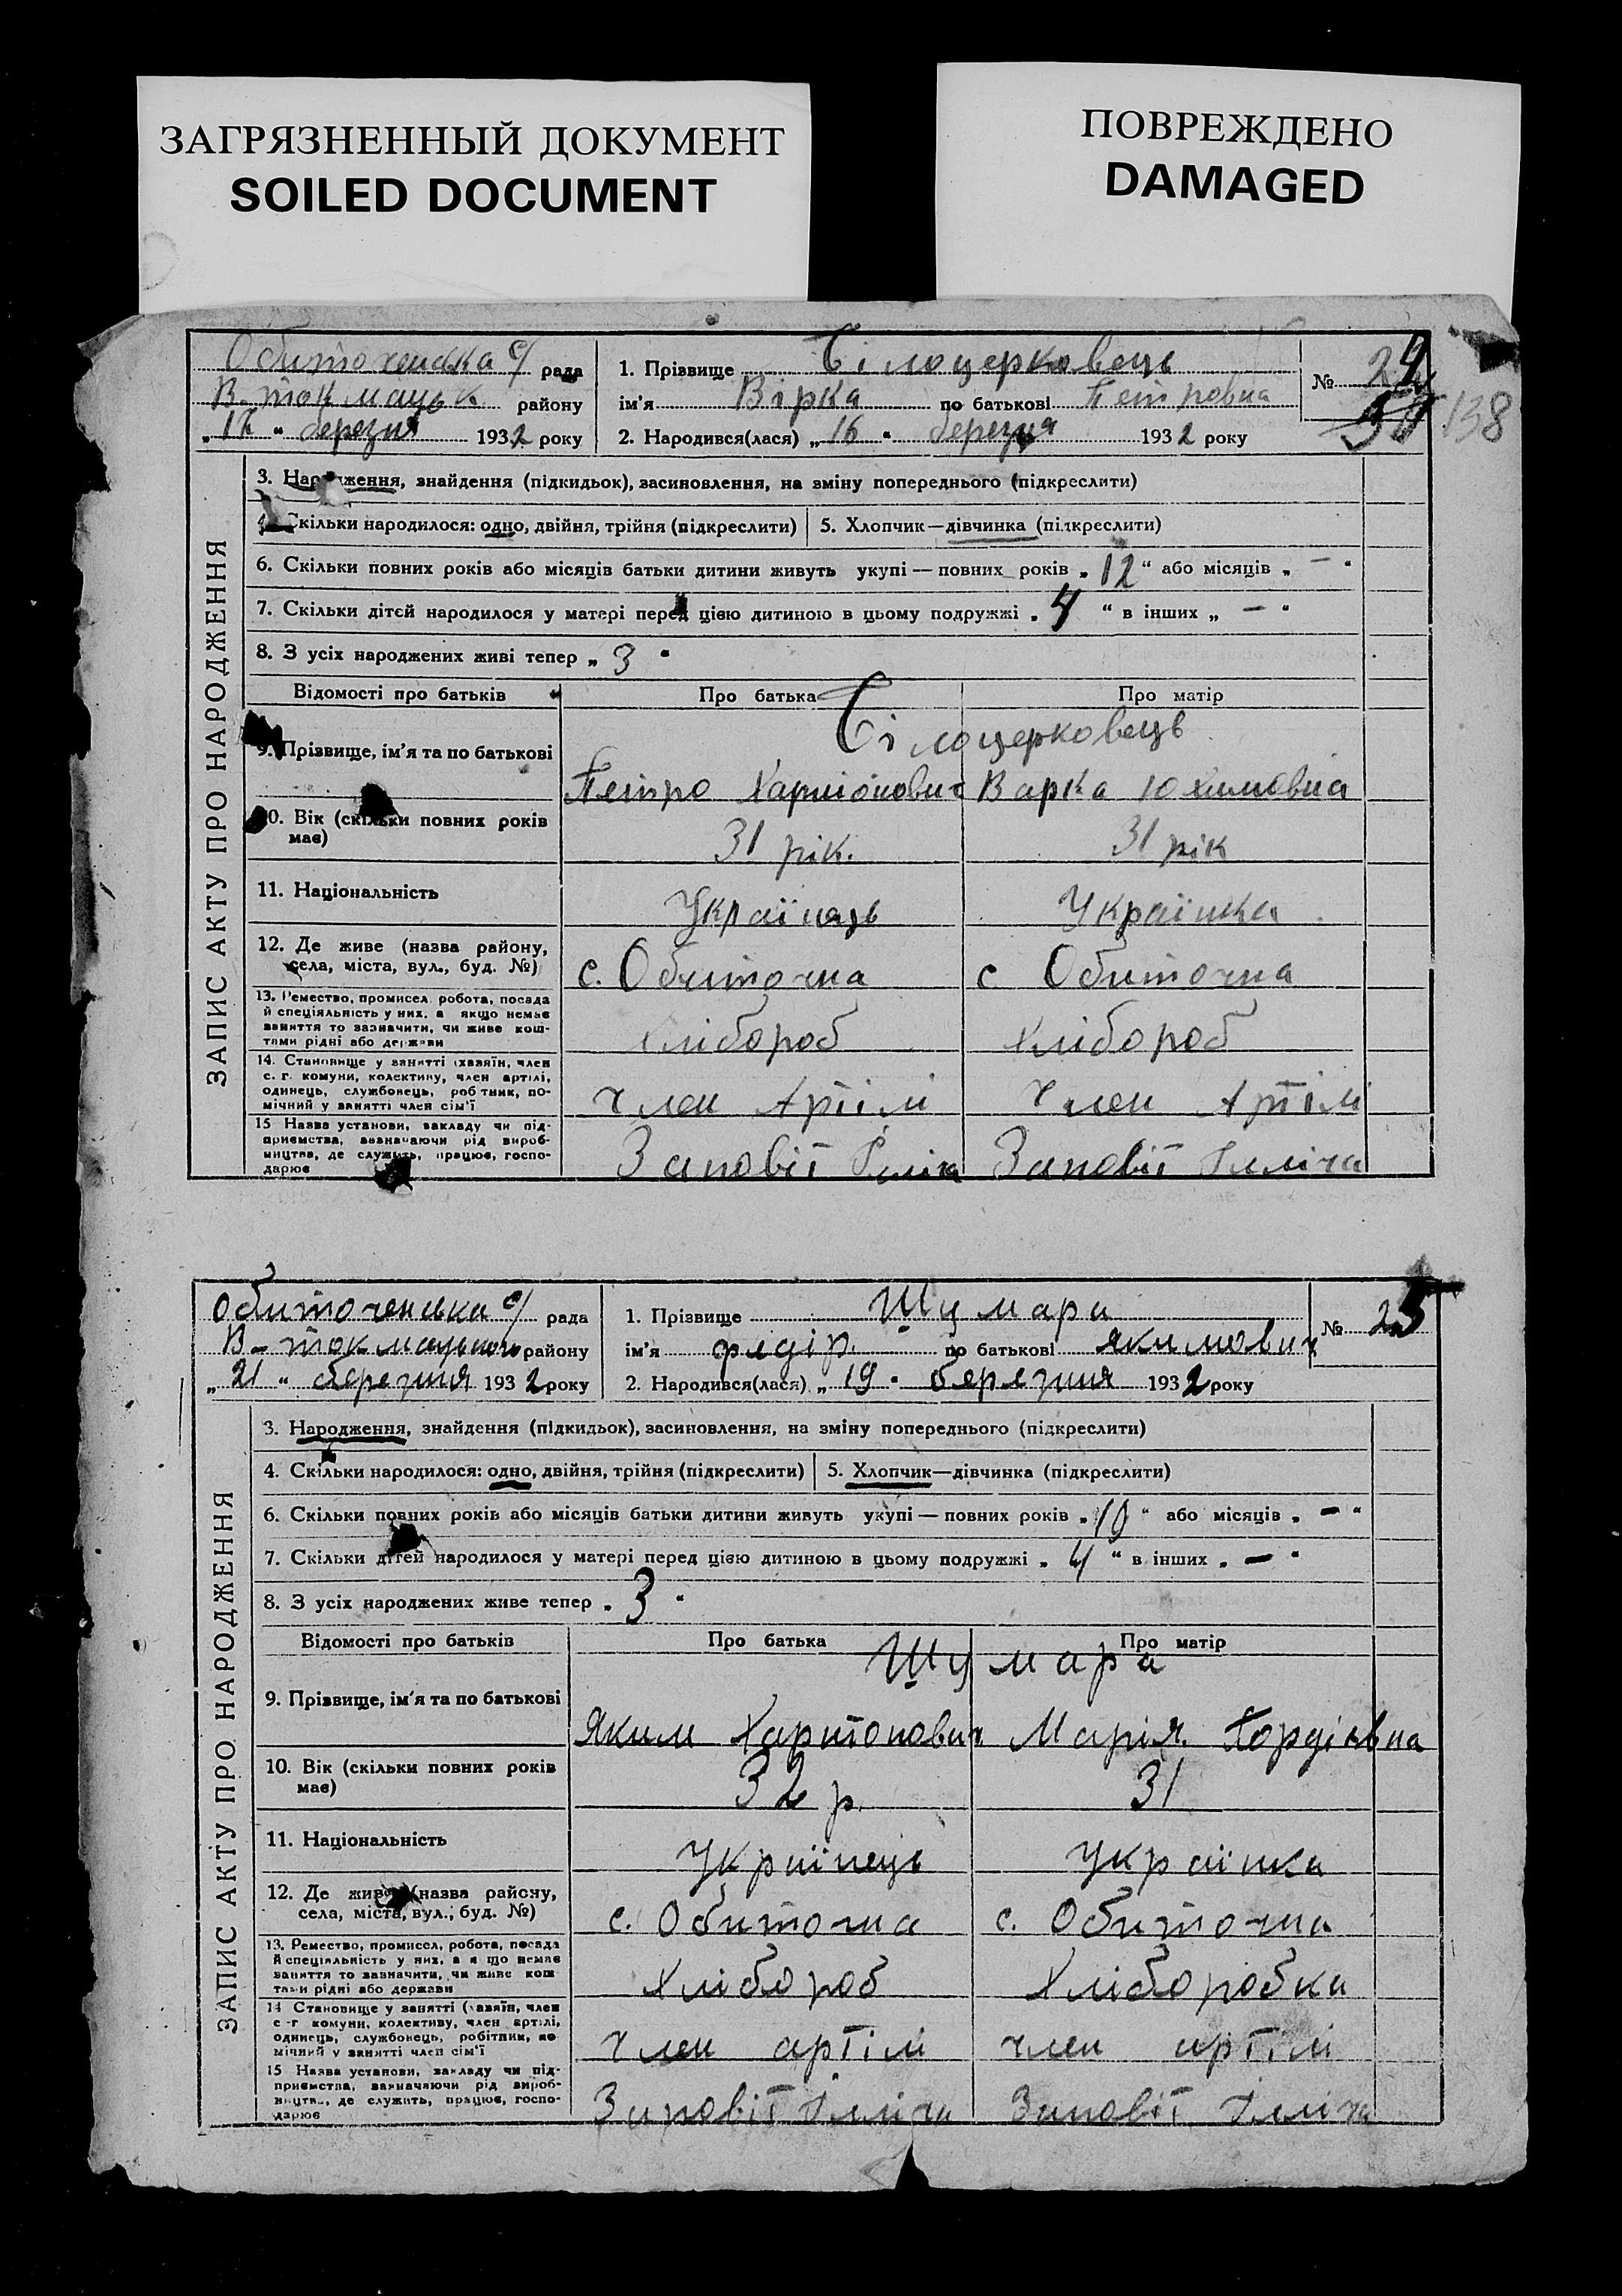 ЗАГРЯЗНЕННЫЙ ДОКУМЕНТ
SOILED DOCUMENT
ПОВРЕЖДЕНО
DAMAGED
138
Обиточенська с/ рада
В-Токмацьк району
березня 1932 року
1. Прізвище Білоцерковець
ім'я Вірка по батькові Петровна
2. Народився(лася) „16" березня 1932 року
№ 24
ЗАПИС АКТУ ПРО НАРОДЖЕННЯ
3. Народження, знайдення (підкидьок), засиновлення, на зміну попереднього (підкреслити)
4. Скільки народилося: одно, двійня, трійня (підкреслити) 5. Хлопчик—дівчинка (підкреслити)
6. Скільки повних років або місяців батьки дитини живуть укупі — повних років „12" або місяців „—"
7. Скільки дітей народилося у матері перед цією дитиною в цьому подружжі „4" в інших „—"
8. З усіх народжених живі тепер „3"
Відомості про батьків Про батька Про матір
9. Прізвище, ім'я та по батькові
Білоцерковець
Петро Варка Юхимовна
10. Вік (скільки повних років має)
31 рік. 31 рік
11. Національність
Українець Українка
12. Де живе (назва району,
села, міста, вул., буд. №)
с. Обиточна с Обиточна
13. Ремество, промисел, робота, посада
й спеціяльність у них, а якщо немає
заняття то зазначити, чи живе кош-
тами рідні або держави
хлібороб хлібороб
14. Становище у занятті (хазяїн, член
с. г. комуни, колективу, член артілі,
одинець, службовець, робітник, по-
мічний у занятті член сім'ї
член Артілі член Артілі
15 Назва установи, закладу чи під-
приємства, зазначаючи рід вироб-
ництва, де служить, працює, госпо-
дарює
Заповіт Ілліча Заповіт Ілліча
Обиточенська с/ рада
В-Токмацького району
„21" березня 1932 року
1. Прізвище Шумара
ім'я Федір по батькові Якимович
2. Народився(лася) „19" березня 1932 року
№ 25
ЗАПИС АКТУ ПРО НАРОДЖЕННЯ
3. Народження, знайдення (підкидьок), засиновлення, на зміну попереднього (підкреслити)
4. Скільки народилося: одно, двійня, трійня (підкреслити) 5. Хлопчик—дівчинка (підкреслити)
6. Скільки повних років або місяців батьки дитини живуть укупі — повних років „10" або місяців „—"
7. Скільки дітей народилося у матері перед цією дитиною в цьому подружжі „4" в інших „—"
8. З усіх народжених живе тепер „3"
Відомості про батьків Про батька Про матір
9. Прізвище, ім'я та по батькові
Шумара
Яким Харитонович Марія
10. Вік (скільки повних років має)
32 р. 31
11. Національність
Українець Українка
12. Де живе (назва району,
села, міста, вул., буд. №)
с. Обиточна с. Обиточна
13. Ремество, промисел, робота, посада
й спеціяльність у них, а якщо немає
заняття то зазначити, чи живе кош
тами рідні або держави
Хлібороб Хліборобка
14 Становище у занятті (хазяїн, член
с-г комуни, колективу, член артілі,
одинець, службовець, робітник, по
мічний у занятті член сім'ї
член артілі член артілі
15 Назва установи, закладу чи під-
приємства, зазначаючи рід вироб-
ництва, де служить, працює, госпо-
дарює
Заповіт Ілліча Заповіт Ілліча